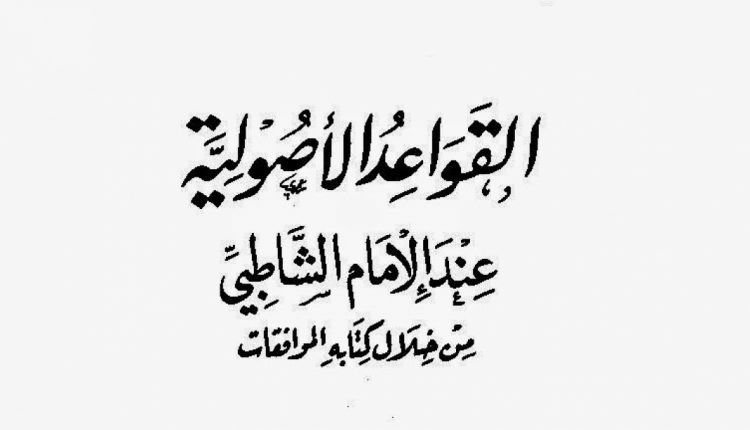 القَوَاعِدُ الأُصُوليَّة
عِنْدَ الإِمَام الشَّاطِبيِّ
مِنْ خِلَال كِتَابهِ الموافقات